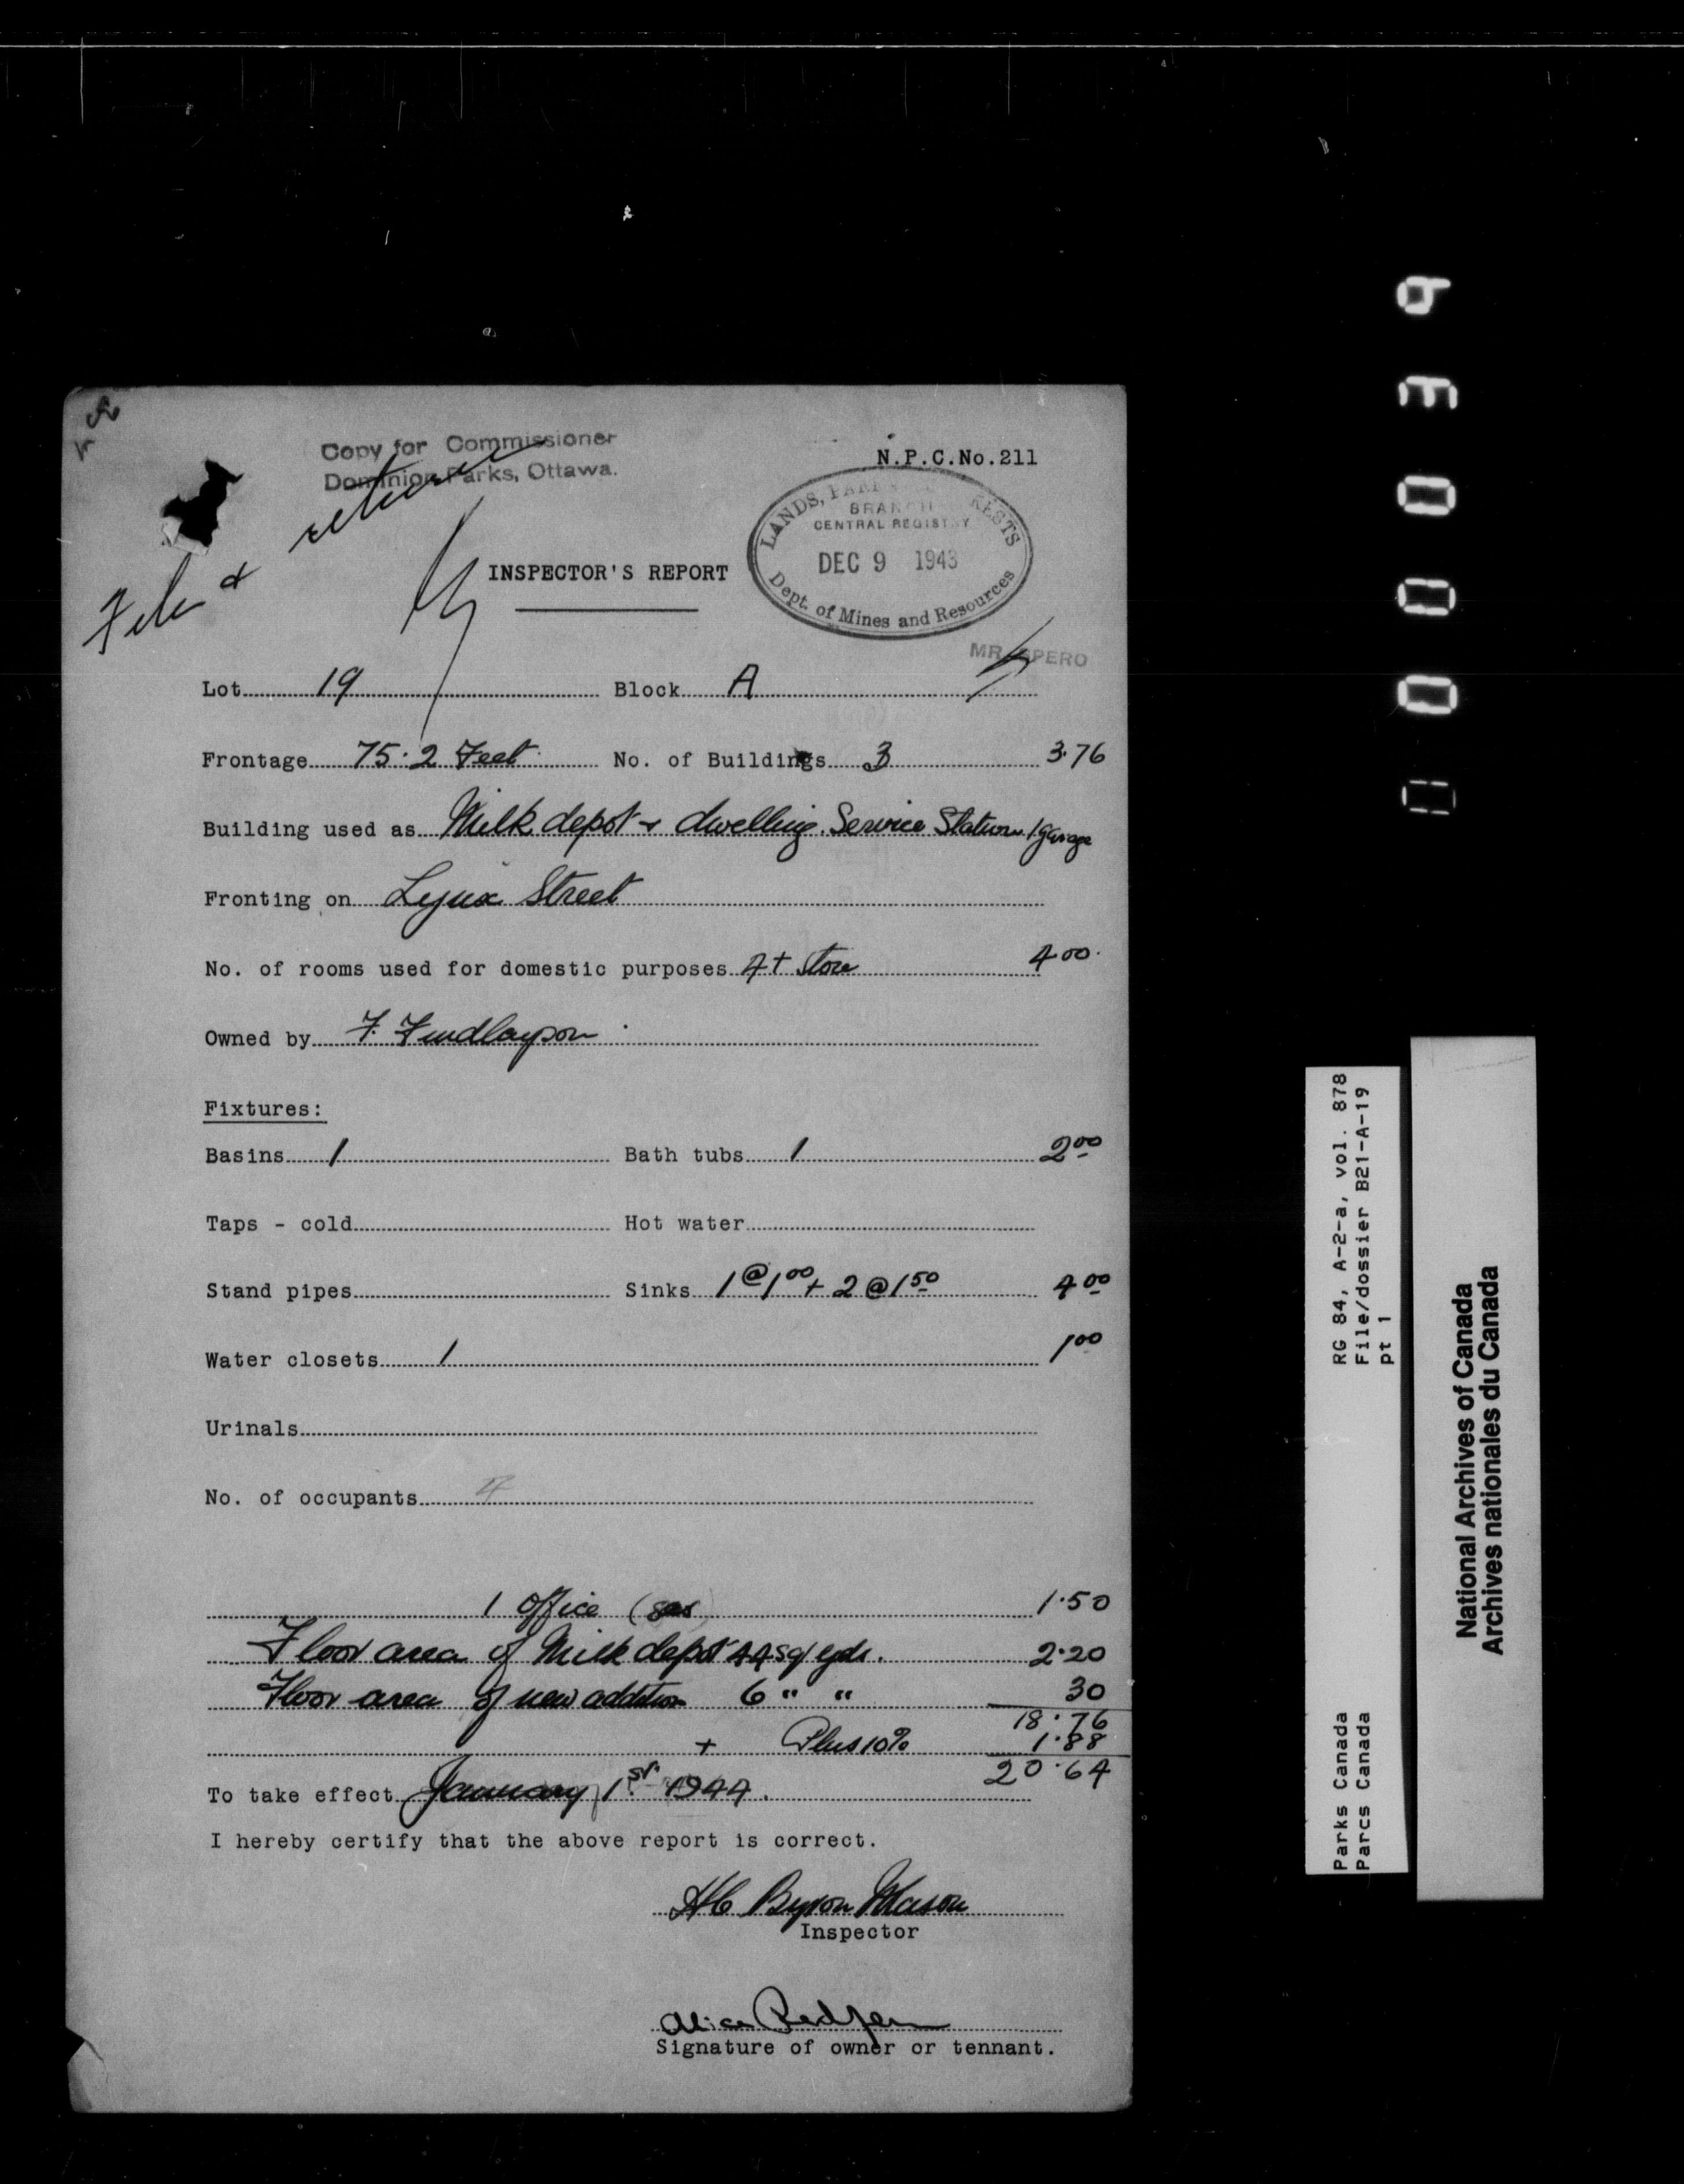 Copy for Commissioner
Dominion Parks, Ottawa.
N.P.C.No.211
File & return
LANDS, PARKS FORESTS
BRANCH
CENTRAL REGISTRY
DEC 9 1943
Dept. of Mines and Resources
INSPECTOR'S REPORT
MR SPERO
Lot 19 Block A
Frontage 75.2 Feet No. of Buildings 3 3.76
Building used as Milk depot & dwelling. Service Station / garage
Fronting on Lynx Street
No. of rooms used for domestic purposes 4 + Store 4 00
Owned by F. Findlayson
Fixtures:
Basins 1 Bath tubs 1 2 00
Taps - cold Hot water
Stand pipes Sinks 1 @ 1 00 + 2 @ 1 50 4 00
Water closets 1 1 00
Urinals
No. of occupants 4
1 Office ( 1.50
Floor area of Milk depot 44 sq yds. 2.20
Floor area of new addition 6 " " 30
18.76
+ Plus 10% 1.88
20.64
To take effect January 1st 1944.
I hereby certify that the above report is correct.
HC Byron Mason
Inspector
Alice
Signature of owner or tennant.
RG 84, A-2-a, vol. 878
File/dossier B21-A-19
pt 1
Parks Canada
Parcs Canada
National Archives of Canada
Archives nationales du Canada